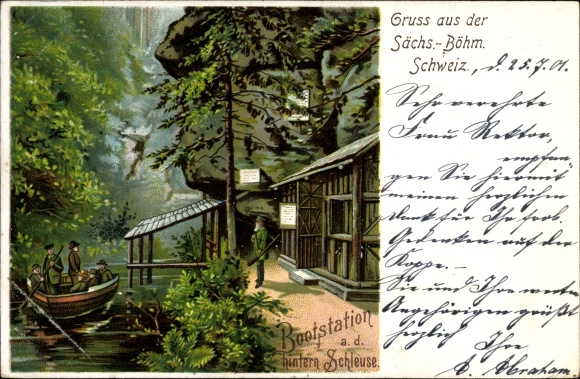 Gruss aus der
Sächs.-Böhm.
Schweiz., d. 25.7.01.
Sehr verehrte
Frau Rektor,
empfan-
gen Sie hiermit
meinen herzlichen
Dank für Ihr
Gedenken auf der
Koppe. —
Sie und Ihre werten
Angehörigen grüßt
herzlich Ihre
E. Abraham.
Bootstation
a. d.
hintern Schleuse.